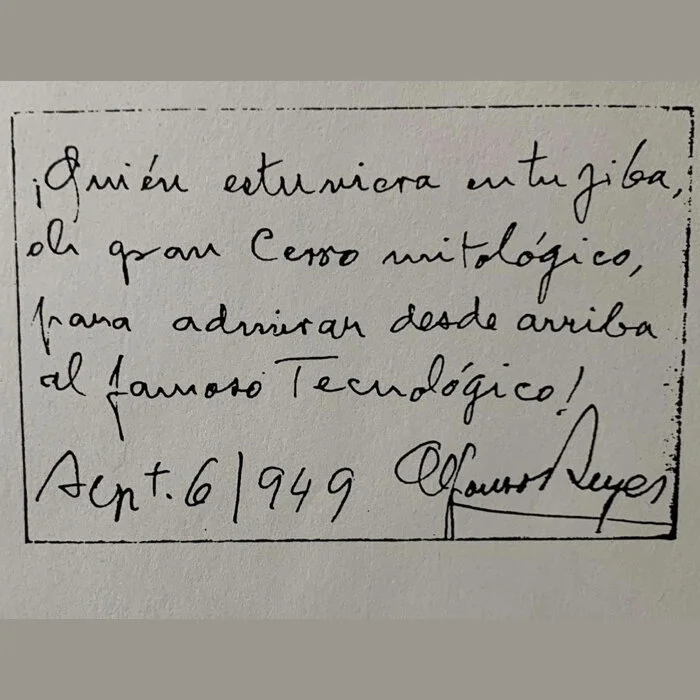 ¡Quién estuviera en tu jiba,
oh gran Cerro mitológico,
para admirar desde arriba
al famoso Tecnológico!
Sept. 6/949 Alfonso Reyes